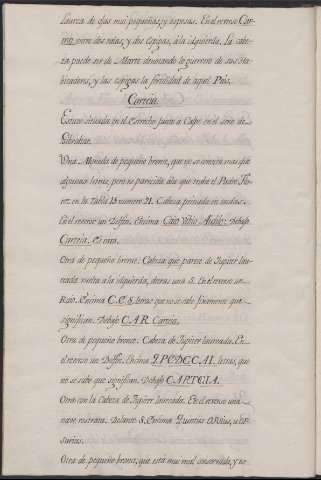 laurea de ojas mui pequeñas, y espesas. En el reverso Car-
entre dos rayas, y dos espigas, á la izquierda. La cabe-
za puede ser de Marte denotando lo guerrero de sus ha-
bitadores, y las espigas la fertilidad de aquel País.
Carteia.
Estuvo situada en el Estrecho junto a Calpe en el sitio de
Gibraltar.
Una Moneda de pequeño bronce, que no se conserva mas que
algunas letras, pero es parecida á la que trahe el Padre Flo-
rez en la Tabla 15 numero 21. Cabeza peinada en
En el reverso un Delfin. Encima Caio Debajo
Carteia. Es rara.
Otra de pequeño bronce. Cabeza que parece de Jupiter lau-
reada vuelta a la izquierda, detras una S. En el reverso un
Raio. Encima C.E.S. letras que no se sabe fixamente que
significan. Debajo C.A.R. Carteia.
Otra de pequeño bronce. Cabeza de Jupiter laureada. En
el reverso un Delfin. Encima letras, que
no se sabe que significan. Debajo CARTEIA.
Otra con la Cabeza de Jupiter laureada. En el reverso una
nave rostrata. Delante S. Encima
Otra de pequeño bronce, que está mui mal conservada, y no